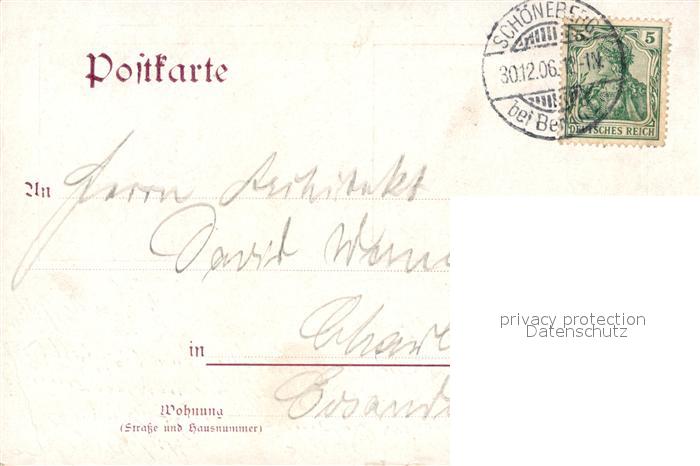 SCHÖNEBERG
30.12.06.
bei Ber
5 5
DEUTSCHES REICH
Postkarte
An Herrn Architekt
David
in Charl
Wohnung
(Straße und Hausnummer)
privacy protection
Datenschutz